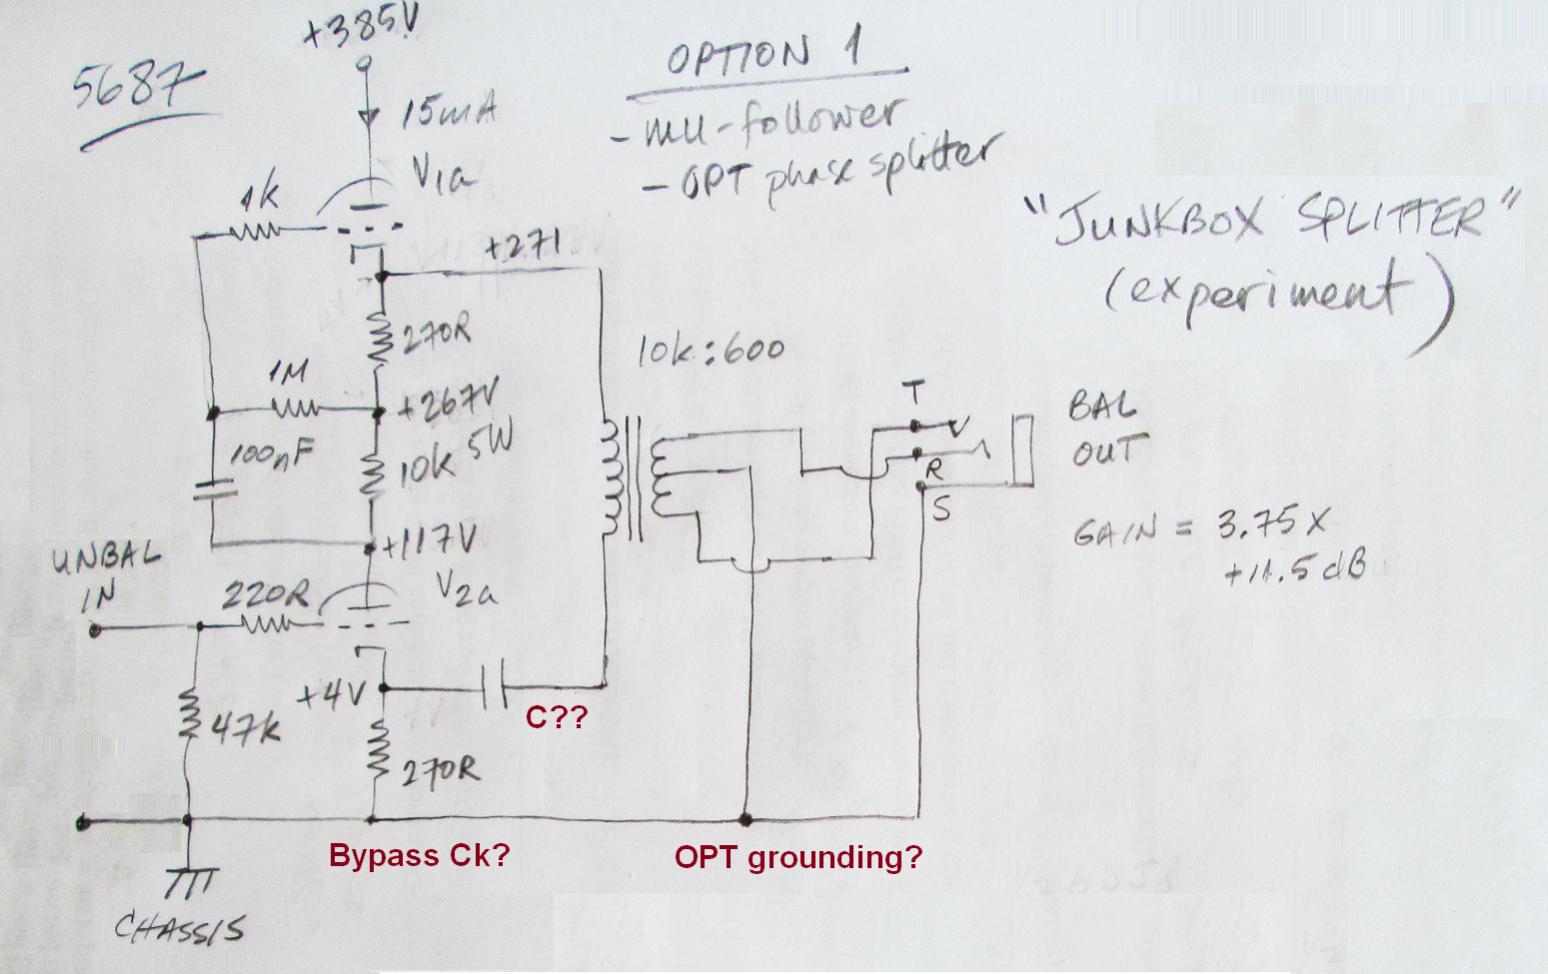 5687
+385V
15mA
V1a
OPTION 1
- MU-follower
- OPT phase splitter
"JUNKBOX SPLITTER"
(experiment)
1K
+271
270R
10k:600
1M
+267V
100nF
10K 5W
T
R
S
BAL
OUT
GAIN = 3.75X
+11.5dB
+117V
UNBAL
IN
220R
V2a
+4V
C??
47K
270R
Bypass Ck?
OPT grounding?
CHASSIS